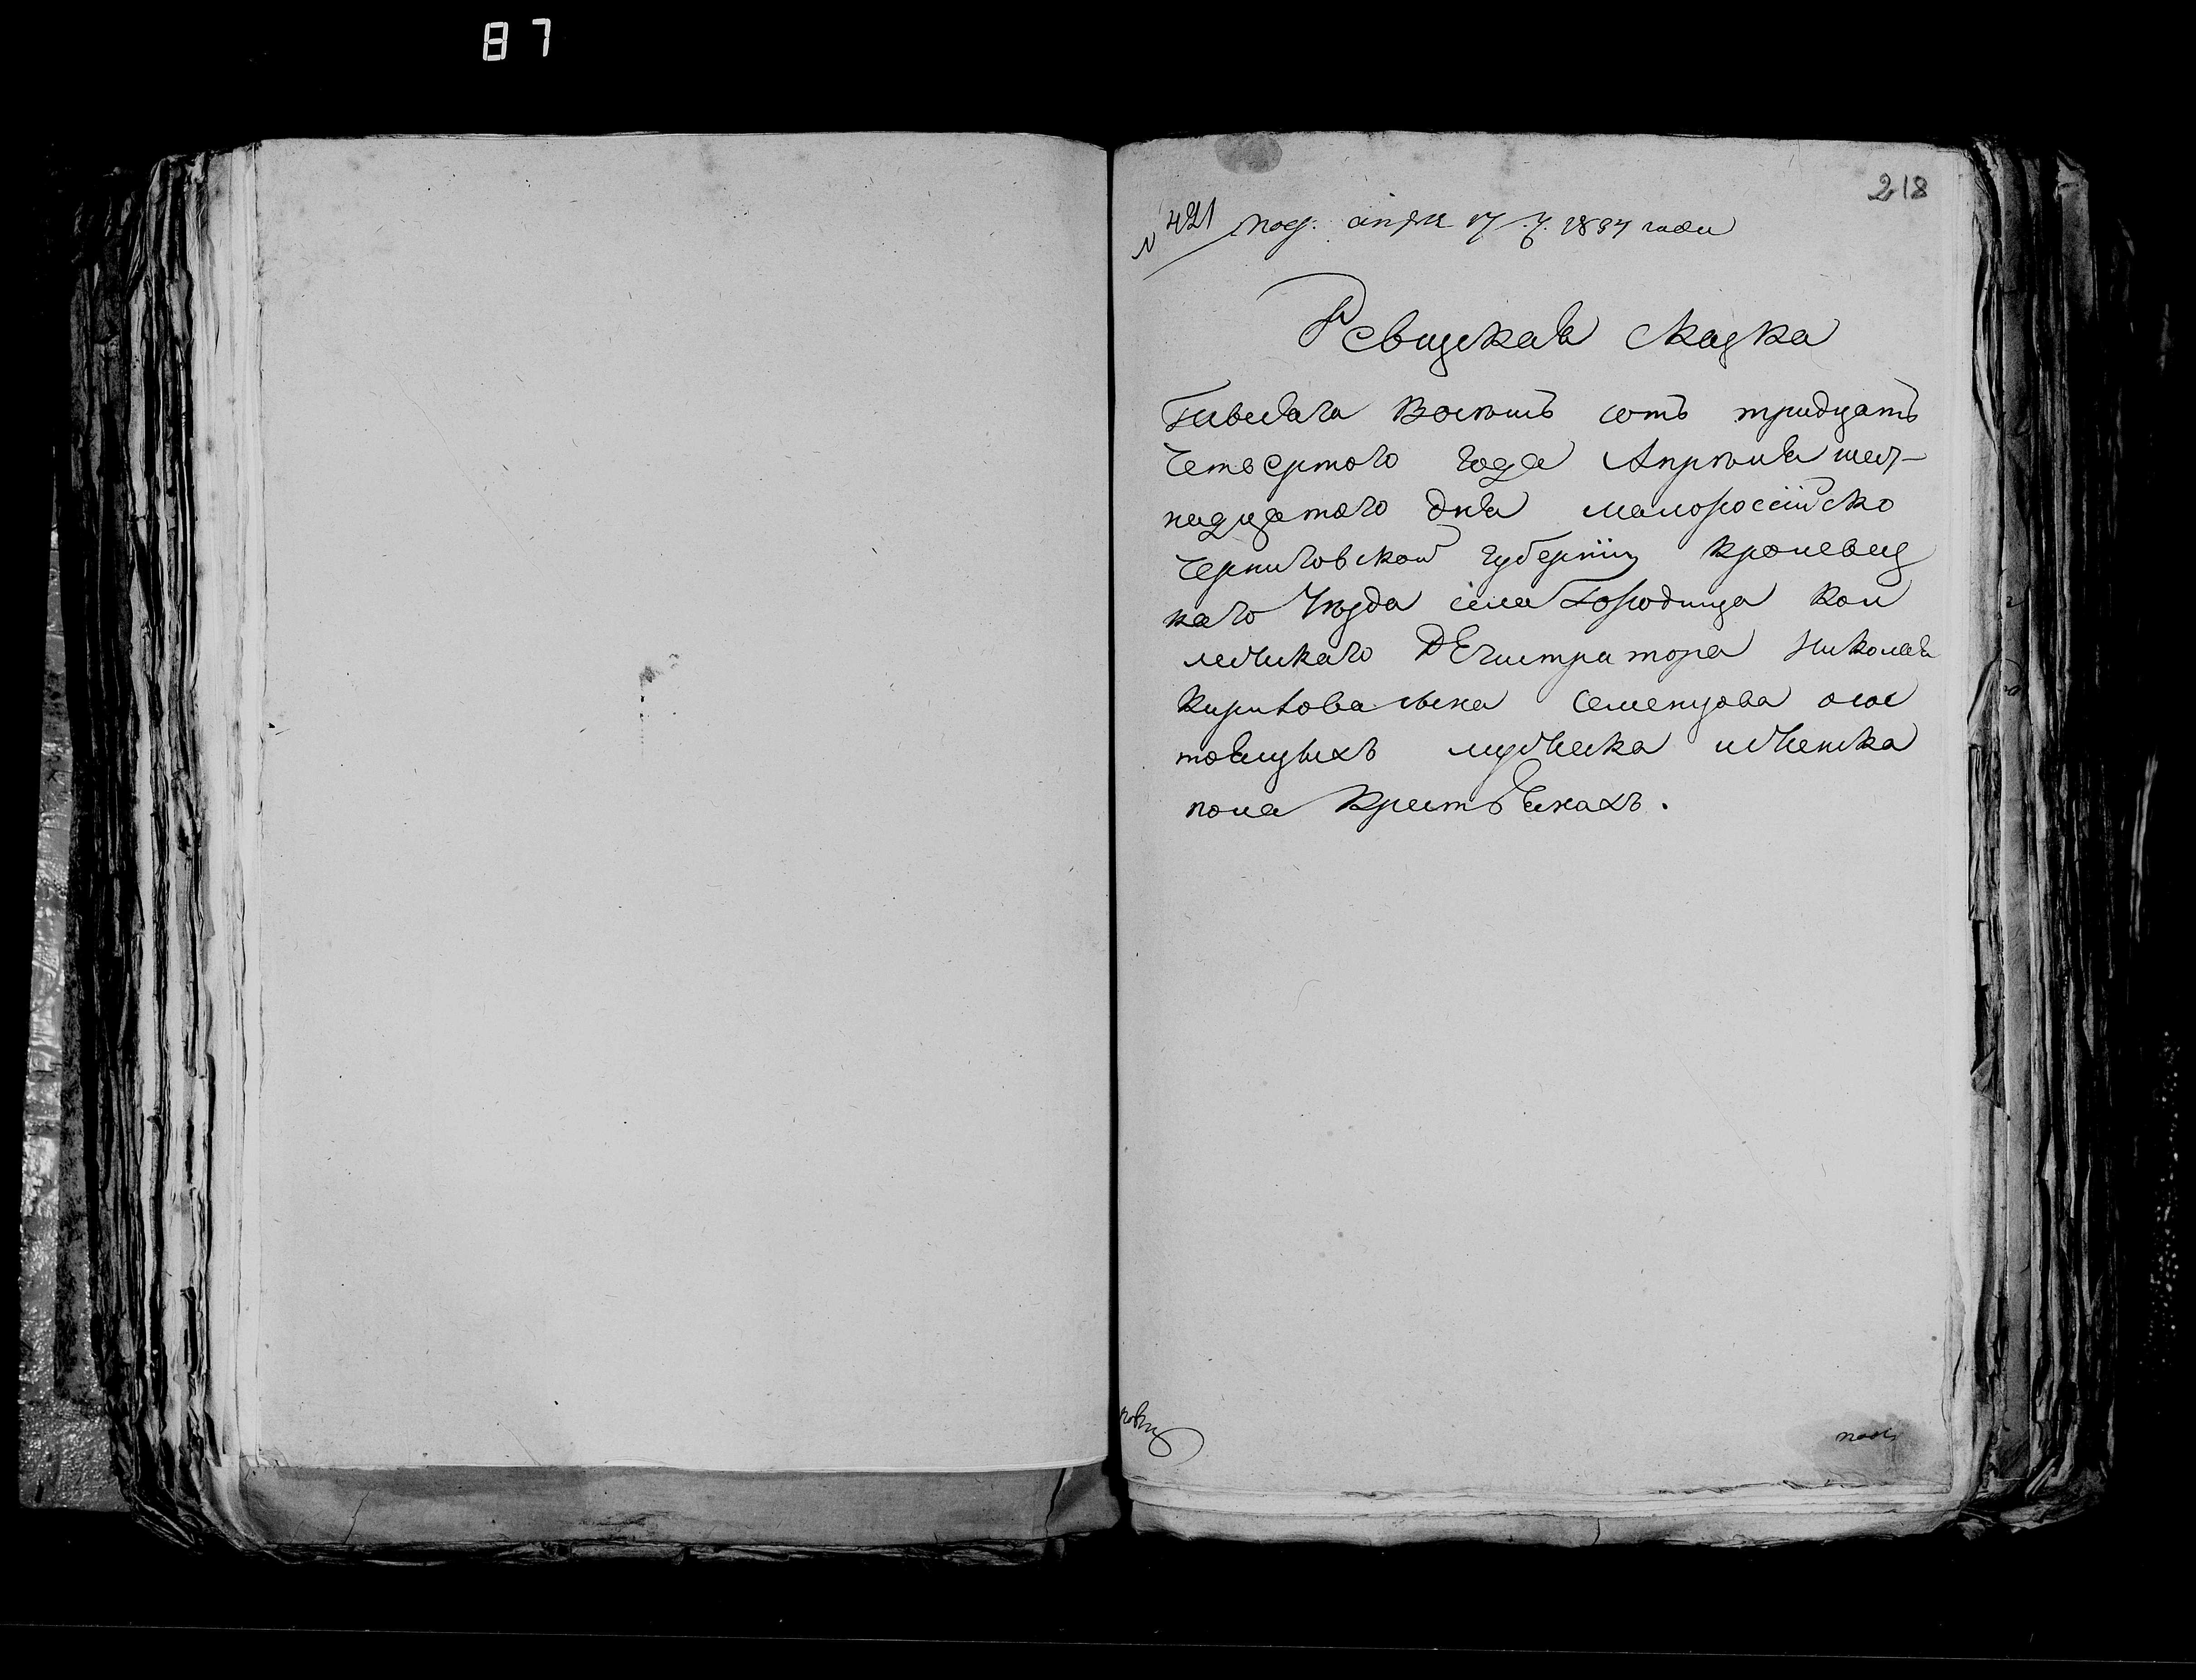 87
218
№ 421 под. апреля 17 д. 1834 года
Ревизская Сказка
Тисеча Восемь сотъ тридцать
Четвертого года Апреля шест-
надцатого дня малоросийско
Черниговской губернии Кролевец
каго Уезда села Городища Кол
лежскаго РЕгистратора Николая
Кирилова сына Семенцова о сос
тоящихъ мужеска и женска
пола Крестьянахъ.